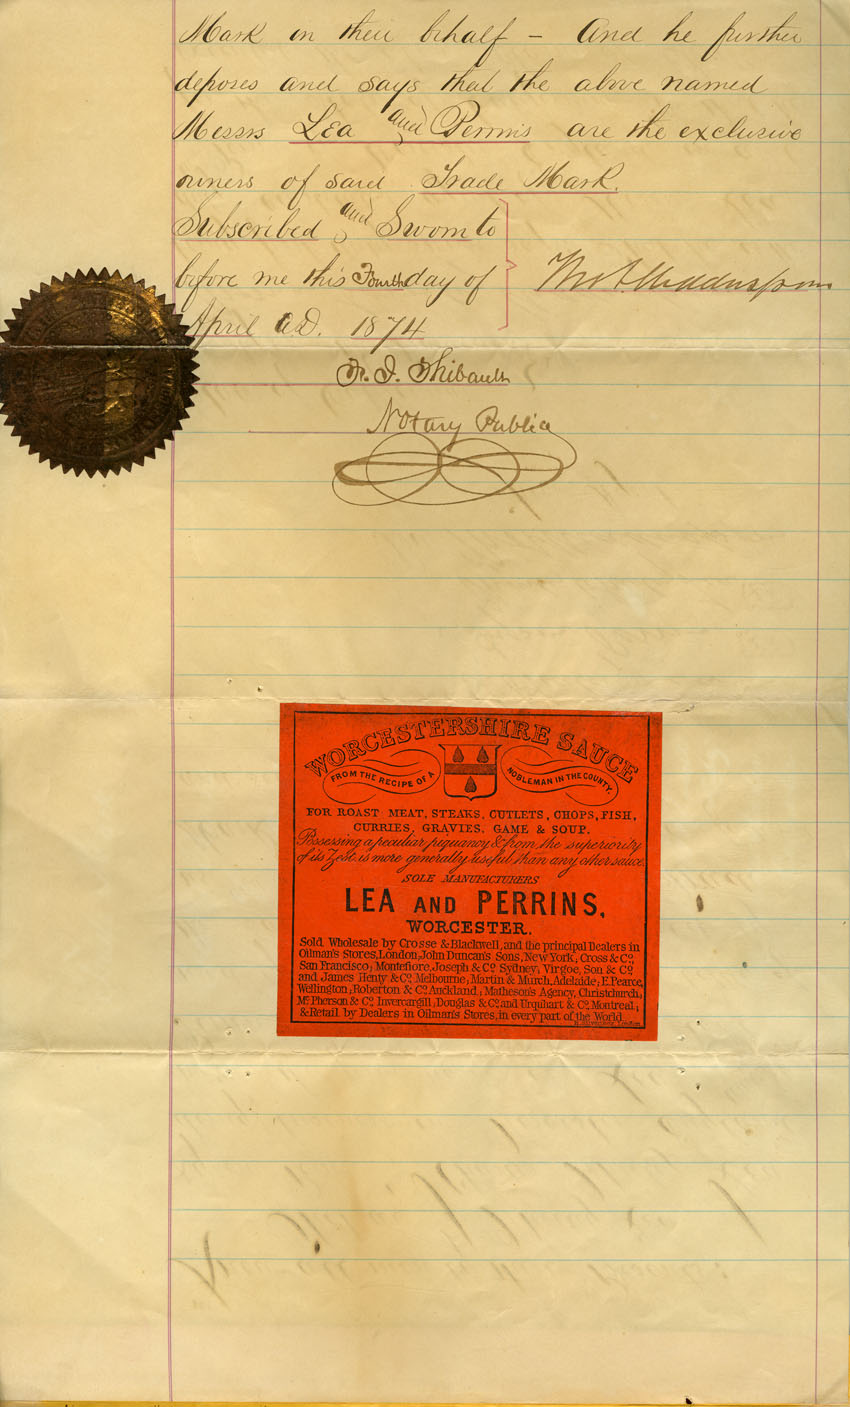 Mark in their behalf – And he further
deposes and says that the above named
Messrs Lea and Perrins are the exclusive
owners of said Trade Mark.
Subscribed and Sworn to
before me this Fourth day of
April A.D. 1874
F. J. Thibault
Notary Public
WORCESTERSHIRE SAUCE
FROM THE RECIPE OF A NOBLEMAN IN THE COUNTY.
FOR ROAST MEAT, STEAKS, CUTLETS, CHOPS, FISH,
CURRIES, GRAVIES, GAME & SOUP.
Possessing a peculiar piquancy & from the superiority
of its Zest is more generally useful than any other sauce.
SOLE MANUFACTURERS
LEA AND PERRINS,
WORCESTER.
Sold Wholesale by Crosse & Blackwell, and the principal Dealers in
Oilman's Stores, London; John Duncan's Sons, New York; Cross & Co.
San Francisco; Montefiore, Joseph & Co. Sydney; Virgoe, Son & Co.
and James Henty & Co. Melbourne; Martin & Murch, Adelaide; E. Pearce,
Wellington; Roberton & Co. Auckland; Matheson's Agency, Christchurch;
Mc.Pherson & Co. Invercargill; Douglas & Co. and Urquhart & Co. Montreal;
& Retail by Dealers in Oilman's Stores, in every part of the World.
London